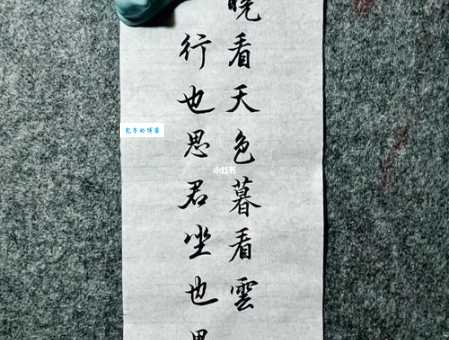 晓看天色暮看雲
行也思君坐也思
小红书